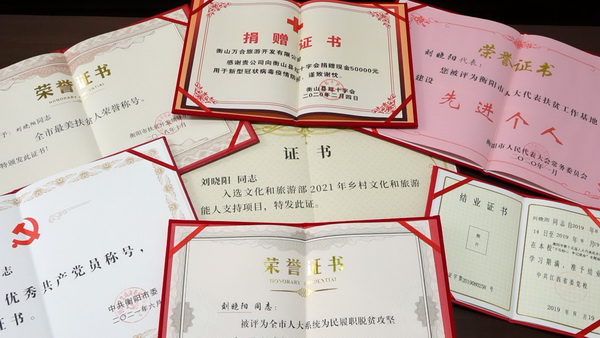 荣誉证书
HONORARY CREDENTIAL
刘晓阳同志
全市最美扶贫人荣誉称号。
特颁发此证书!
捐赠证书
衡山万合旅游开发有限公司
感谢贵公司向衡山县红十字会捐赠现金50000元
用于新型冠状病毒疫情防
谨致谢忱。
衡山县红十字会
二〇二〇年二月四日
荣誉证书
刘晓阳代表:
您被评为衡阳市人大代表扶贫工作基地
建设
先进个人
衡阳市人民代表大会常务委员会
二〇二〇年一月
证书
刘晓阳 同志
入选文化和旅游部2021年乡村文化和旅游
能人支持项目,特发此证。
同志
优秀共产党员称号,
证书。
中共衡阳市委
二〇二一年六月
荣誉证书
HONORARY CREDENTIAL
刘晓阳 同志:
被评为全市人大系统为民履职脱贫攻坚
结业证书
刘晓阳同志自2019
14日至2019年8月
在本校
学习期满,准予结业
中共江西省委党校
2019年8月19日